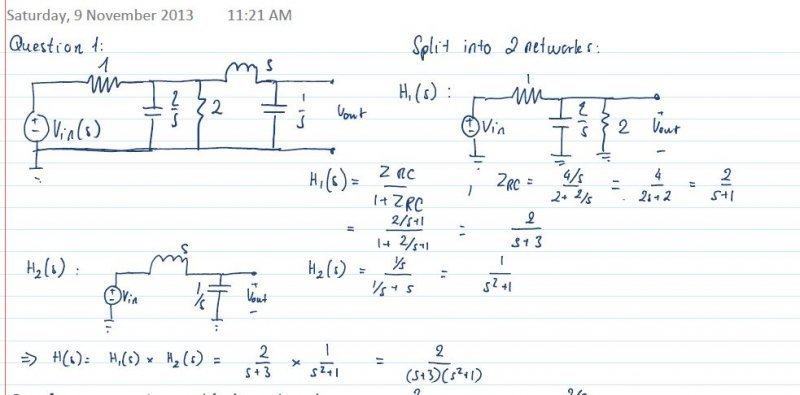 Saturday, 9 November 2013 11:21 AM
Question 1: Split into 2 networks:
1 S
2/s 2 1/s Vout
Vin(s)
H₁(s) : 1
Vin 2/s 2 + Vout -
H₁(s) = ZRC / 1+ZRC , ZRC = 4/s / 2+2/s = 4 / 2s+2 = 2 / s+1
= 2/s+1 / 1+2/s+1 = 2 / s+3
H₂(s) : S
Vin 1/s + Vout -
H₂(s) = 1/s / 1/s + s = 1 / s²+1
⇒ H(s) = H₁(s) × H₂(s) = 2 / s+3 × 1 / s²+1 = 2 / (s+3)(s²+1)